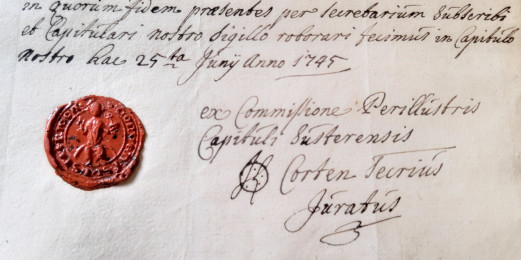 in quorum fidem præsentes per secretarium subscribi
et Capitulari nostro sigillo roborari fecimus in Capitulo
nostro hac 25ta Junij Anno 1745
ex Commissione Perillustris
Capituli Susterensis
Corten Secrius
Juratus